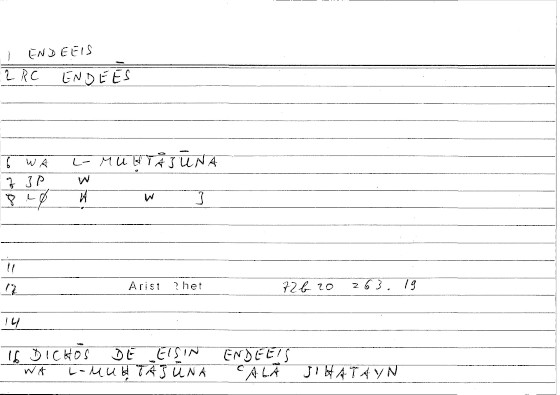 1 ENDEEIS
2 RC ENDEĒS
6 WA L-MUḤTĀJŪNA
7 JP W
8 LØ Ḥ W J
11
12 Arist Rhet 72b20 = 63.19
14
16 DICHŌS DE EISIN ENDEEIS
WA L-MUḤTĀJŪNA ʿALĀ JIHATAYN